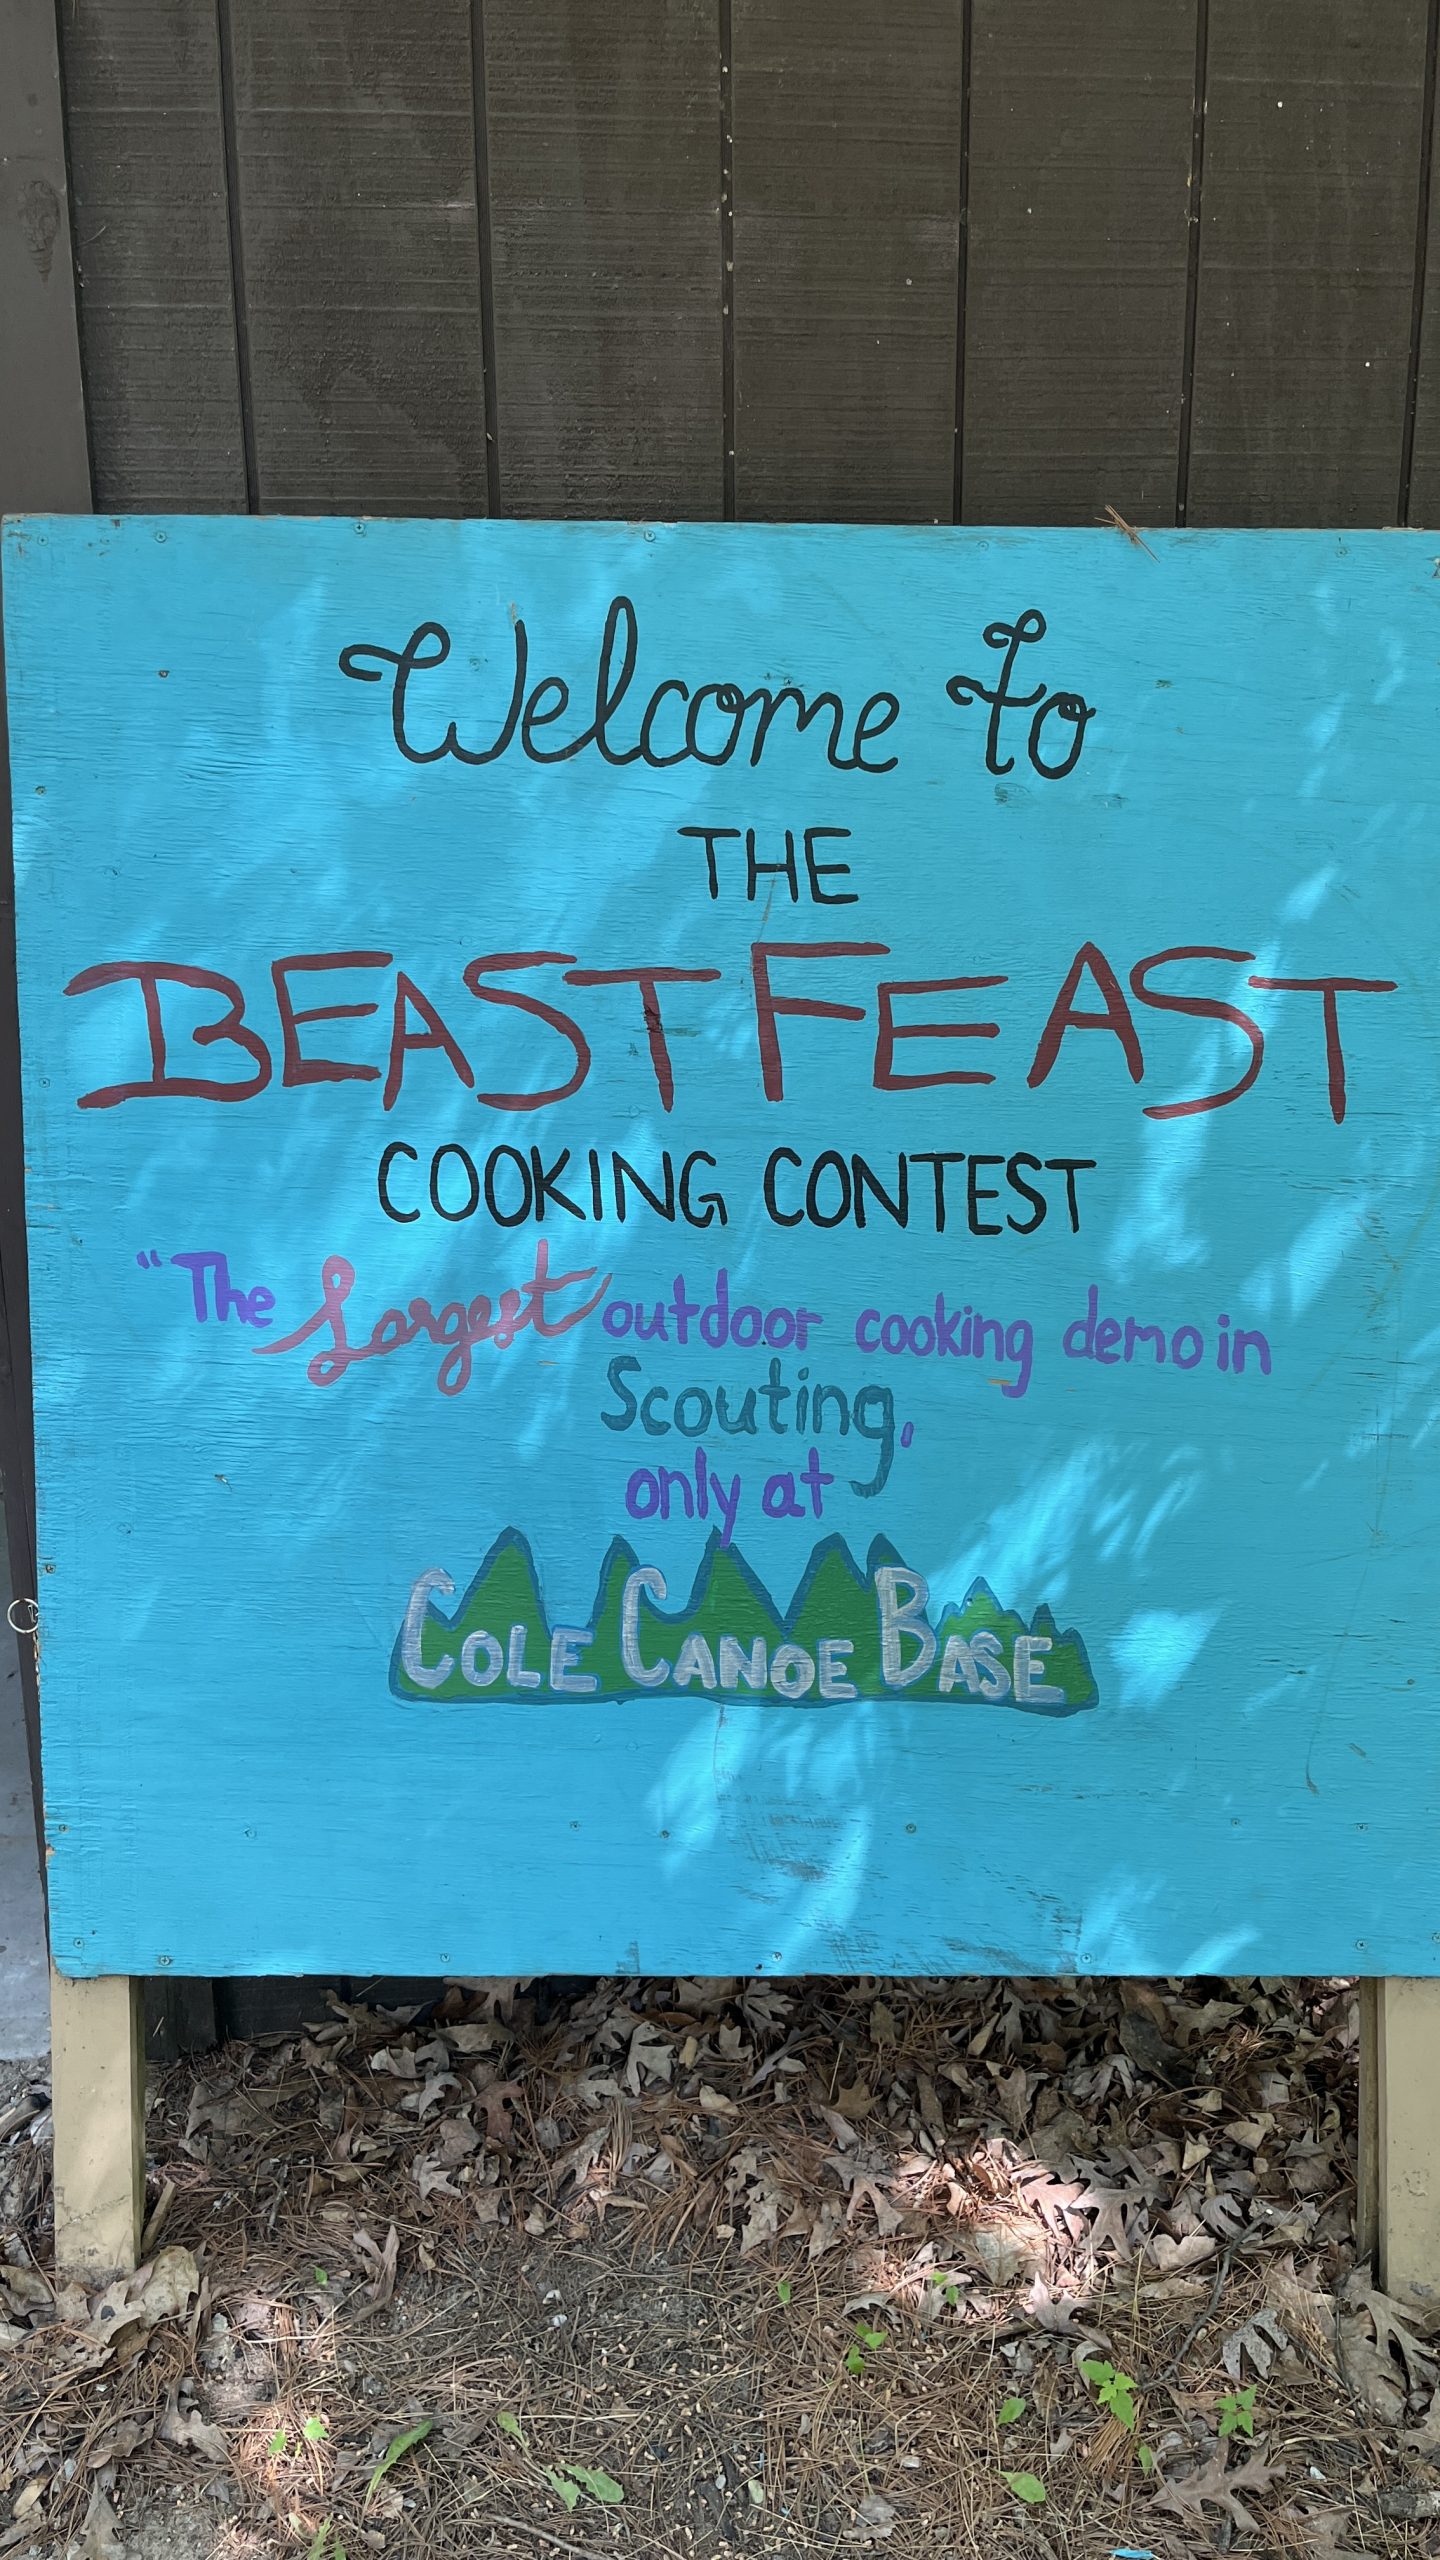 Welcome to
THE
BEAST FEAST
COOKING CONTEST
"The Largest outdoor cooking demo in
Scouting,
only at
COLE CANOE BASE